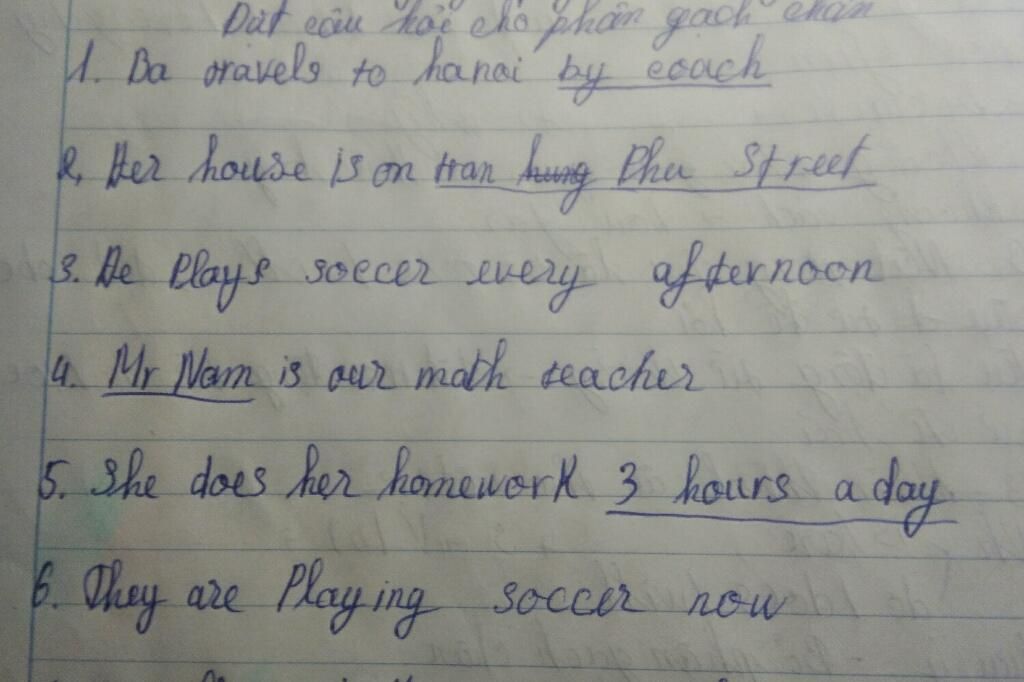 Đặt câu hỏi cho phần gạch chân
1. Ba travels to hanoi by coach
2, Her house is on tran hung Phu Street
3. He Plays soccer every afternoon
4. Mr Nam is our math teacher
5. She does her homework 3 hours a day
6. They are Playing soccer now